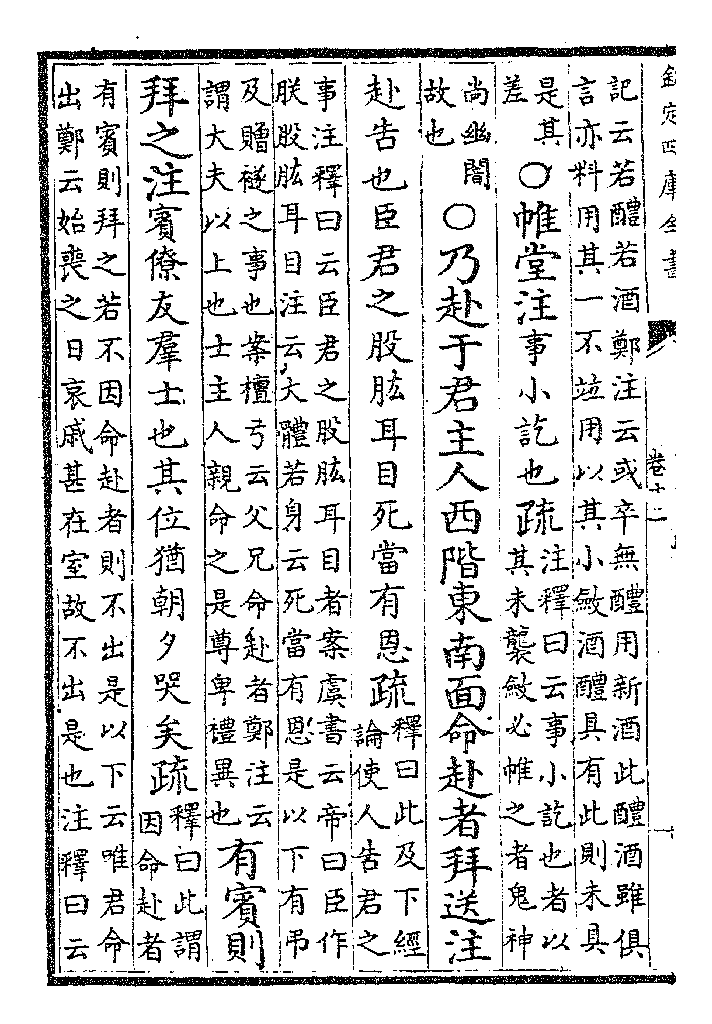 欽定四庫全書
卷十二
記云若醴若酒鄭注云或卒無醴用新酒此醴酒雖俱
言亦料用其一不竝用以其小斂酒醴具有此則未具
是其
差
○帷堂注事小訖也疏
注釋曰云事小訖也者以
其未襲斂必帷之者鬼神
尚幽闇
故也
○乃赴于君主人西階東南面命赴者拜送注
赴告也臣君之股肱耳目死當有恩疏
釋曰此及下經
論使人告君之
事注釋曰云臣君之股肱耳目者案虞書云帝曰臣作
朕股肱耳目注云大體若身云死當有恩是以下有弔
及贈襚之事也案檀弓云父兄命赴者鄭注云
謂大夫以上也士主人親命之是尊卑禮異也
有賓則
拜之注賓僚友羣士也其位猶朝夕哭矣疏
釋曰此謂
因命赴者
有賓則拜之若不因命赴者則不出是以下云唯君命
出鄭云始喪之日哀戚甚在室故不出是也注釋曰云